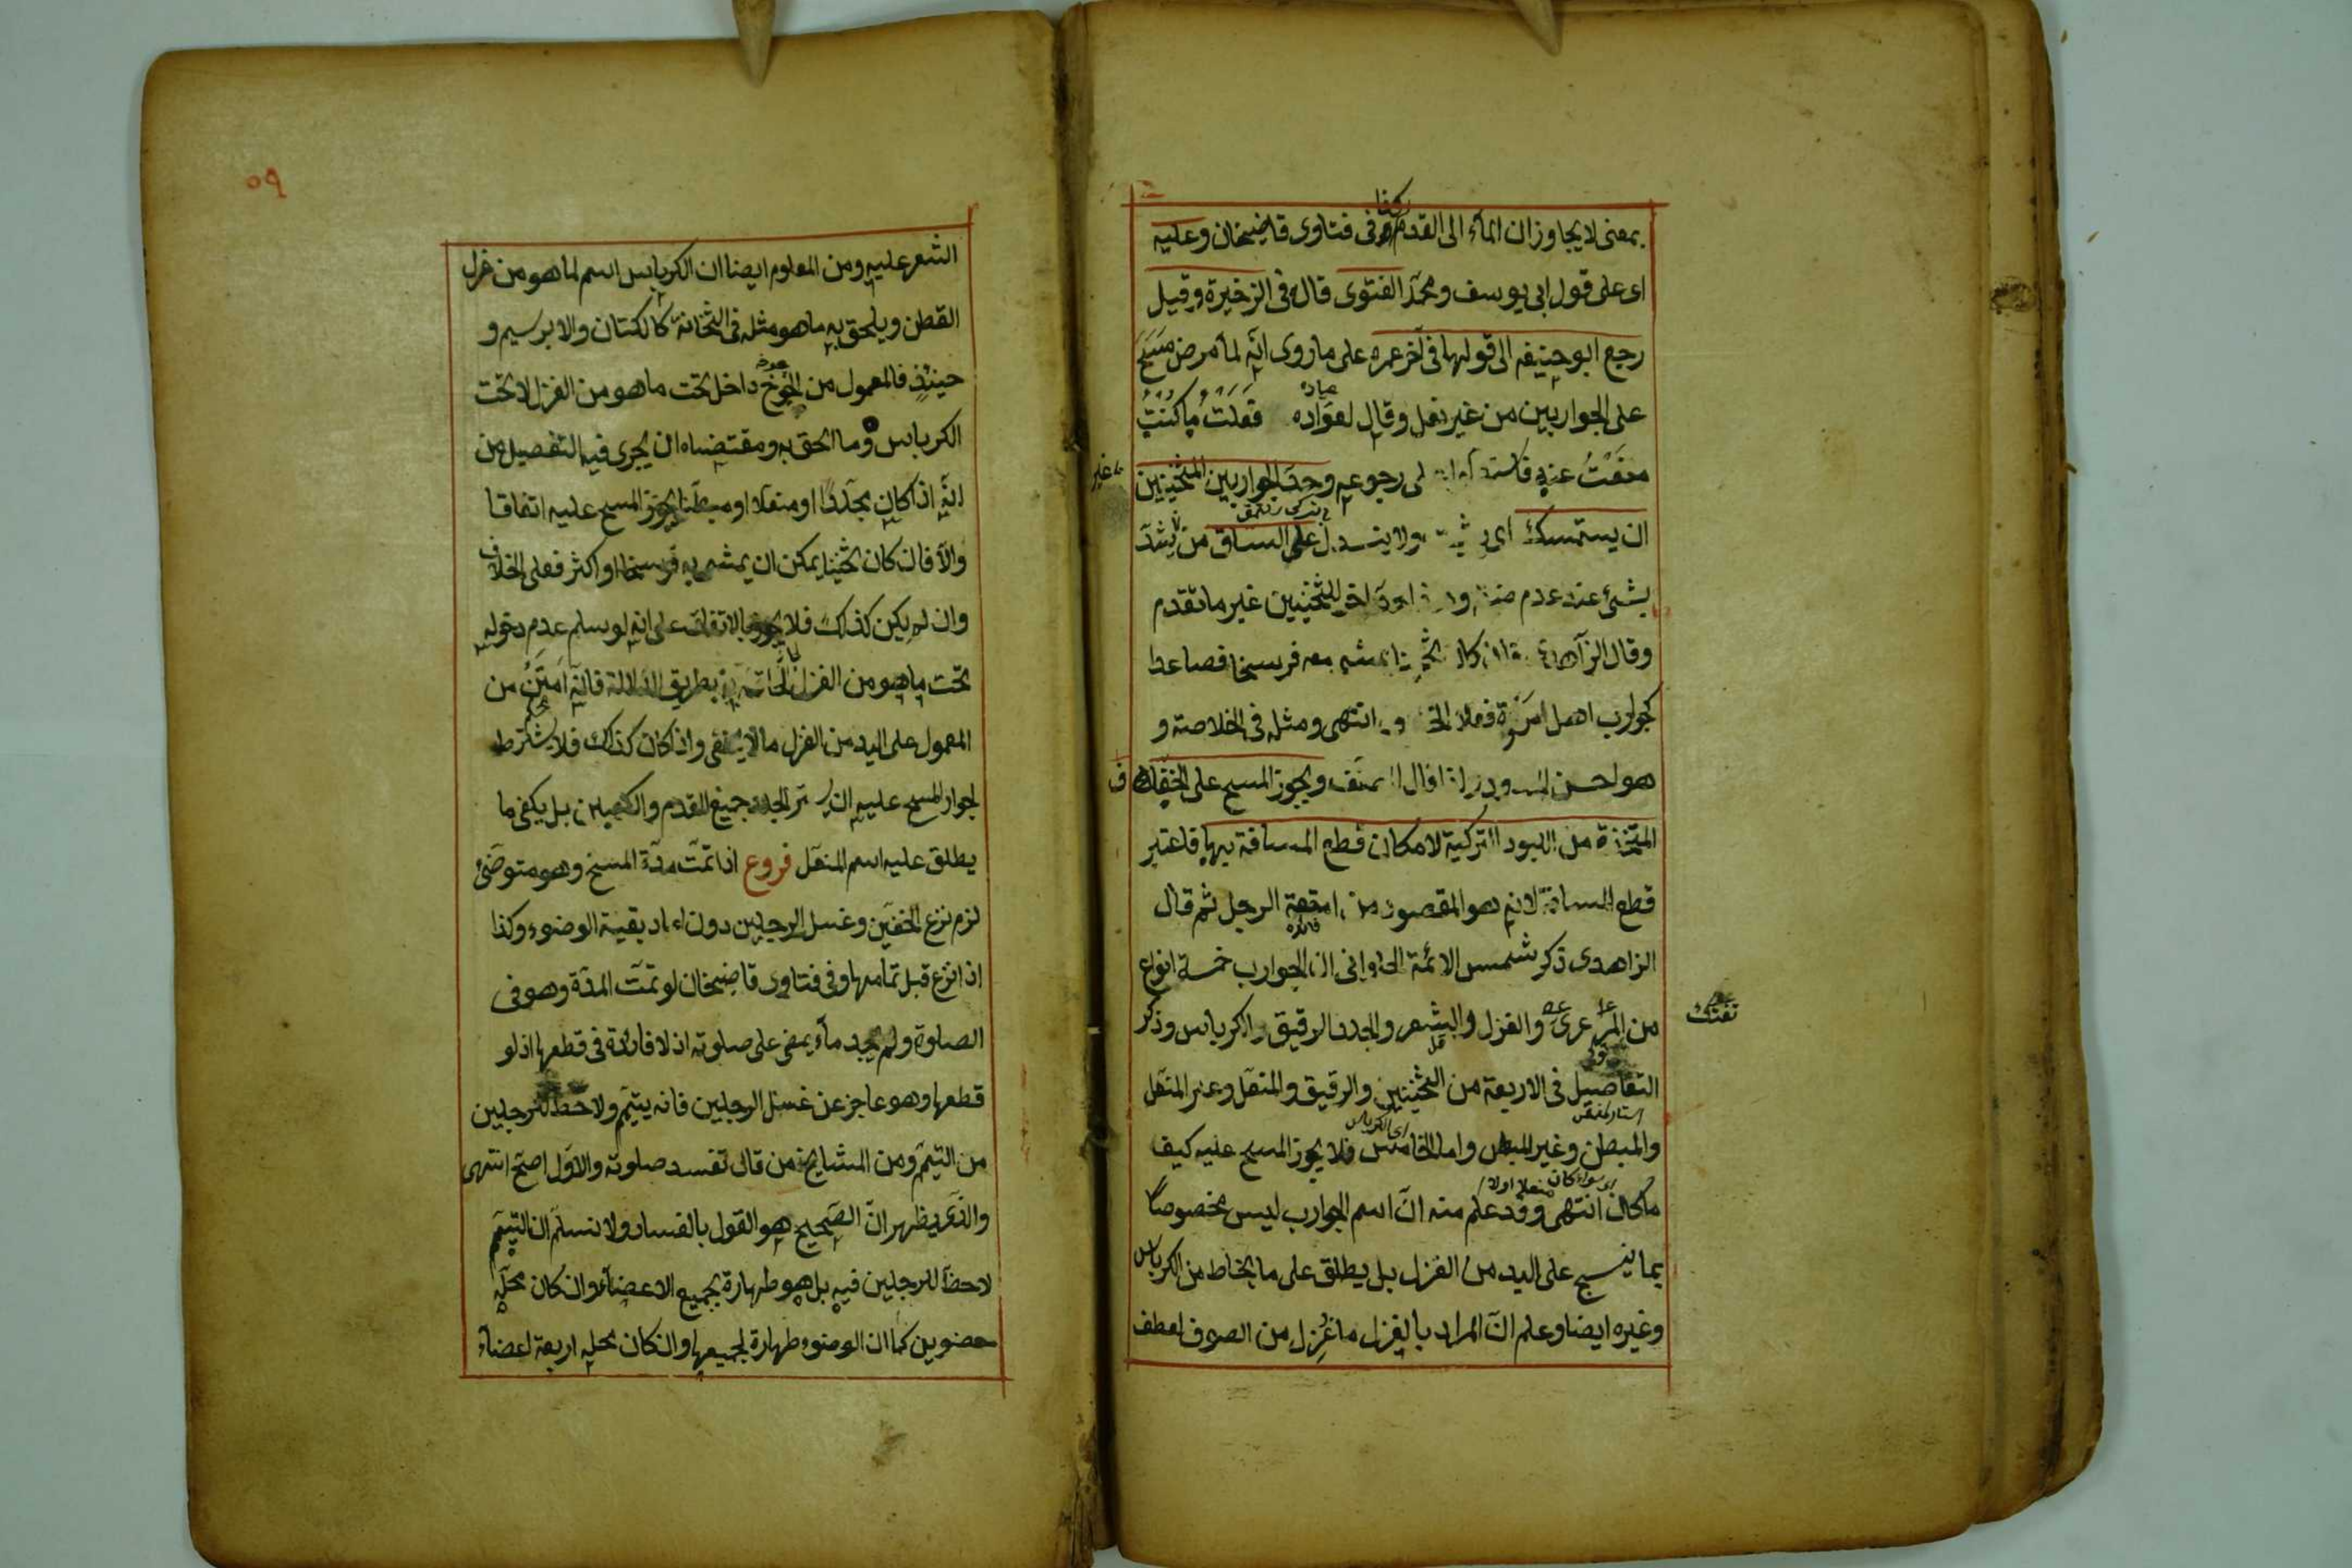 بمعنى لا يجاوزان الماء الى القدم وفى فتاوى قاضيخان وعليه
اى على قول ابى يوسف ومحمد الفتوى قال فى الذخيرة وقيل
رجع ابو حنيفه الى قولهما فى آخر عمره على ما روى انه لما مرض مسح
على الجواربين من غير نعل وقال لعواده فعلت ما كنت
منعت عنه رجوعه وحد الجواربين الثخينين
ان يستمسك اى ولا ينسدل على الساق من غير ان يشد
بشئ غير ما تقدم
وقال الزاهدى يمشى معه فرسخا فصاعدا
كجوارب اهل مرو فعلى الخلاف انتهى ومثله فى الخلاصة و
هو احسن قال المصنف ويجوز المسح على الخفاف
المتخذة من اللبود التركية لامكان قطع المسافة بها فاعتبر
قطع المسافة لانه هو المقصود من الرجل ثم قال
الزاهدى ذكر شمس الائمة الحلوانى ان الجوارب خمسة انواع
من المرعزى والغزل والشعر والجلد الرقيق والكرباس وذكر
التفاصيل فى الاربعة من الثخينين والرقيق والمنعل وغير المنعل
والمبطن وغير المبطن واما الخامس فلا يجوز المسح عليه كيف
ما كان انتهى وقد علم منه ان اسم الجوارب ليس مخصوصا
بما ينسج على اليد من الغزل بل يطلق على ما يخاط من الكرباس
وغيره ايضا وعلم ان المراد بالغزل ما غزل من الصوف لعطف
٥٩
الشعر عليه ومن المعلوم ايضا ان الكرباس اسم لما هو من غزل
القطن ويلحق به ما هو مثله فى الثخانة كالكتان والابرسيم و
حينئذ فالمعمول من الجوخ داخل تحت ما هو من الغزل لا تحت
الكرباس وما الحق به ومقتضاه ان يجرى فيه التفصيل من
انه اذا كان مجلدا او منعلا او مبطنا يجوز المسح عليه اتفاقا
والا فان كان ثخينا يمكن ان يمشى به فرسخا او اكثر فعلى الخلاف
وان لم يكن كذلك فلا يجوز بالاتفاق على انه لو سلم عدم دخوله
تحت ما هو من الغزل بطريق الدلالة فانه امتن من
المعمول على اليد من الغزل ما لا يخفى واذا كان كذلك فلا يشترط
لجواز المسح عليه ان يستر الجلد جميع القدم والكعبين بل يكفى ما
يطلق عليه اسم المنعل فروع اذا تمت مدة المسح وهو متوضئ
لزم نزع الخفين وغسل الرجلين دون اعادة بقية الوضوء وكذا
اذا نزع قبل تمامها وفى فتاوى قاضيخان لو تمت المدة وهو فى
الصلوة ولم يجد ماء يمضى على صلوته اذ لا فائدة فى قطعها اذ لو
قطعها وهو عاجز عن غسل الرجلين فانه يتيمم ولا حظ للرجلين
من التيمم ومن المشايخ من قال تفسد صلوته والاول اصح انتهى
والذى يظهر ان الصحيح هو القول بالفساد ولا نسلم ان التيمم
لا حظ للرجلين فيه بل هو طهارة لجميع الاعضاء وان كان محله
عضوين كما ان الوضوء طهارة لجميعها وان كان محله اربعة اعضاء